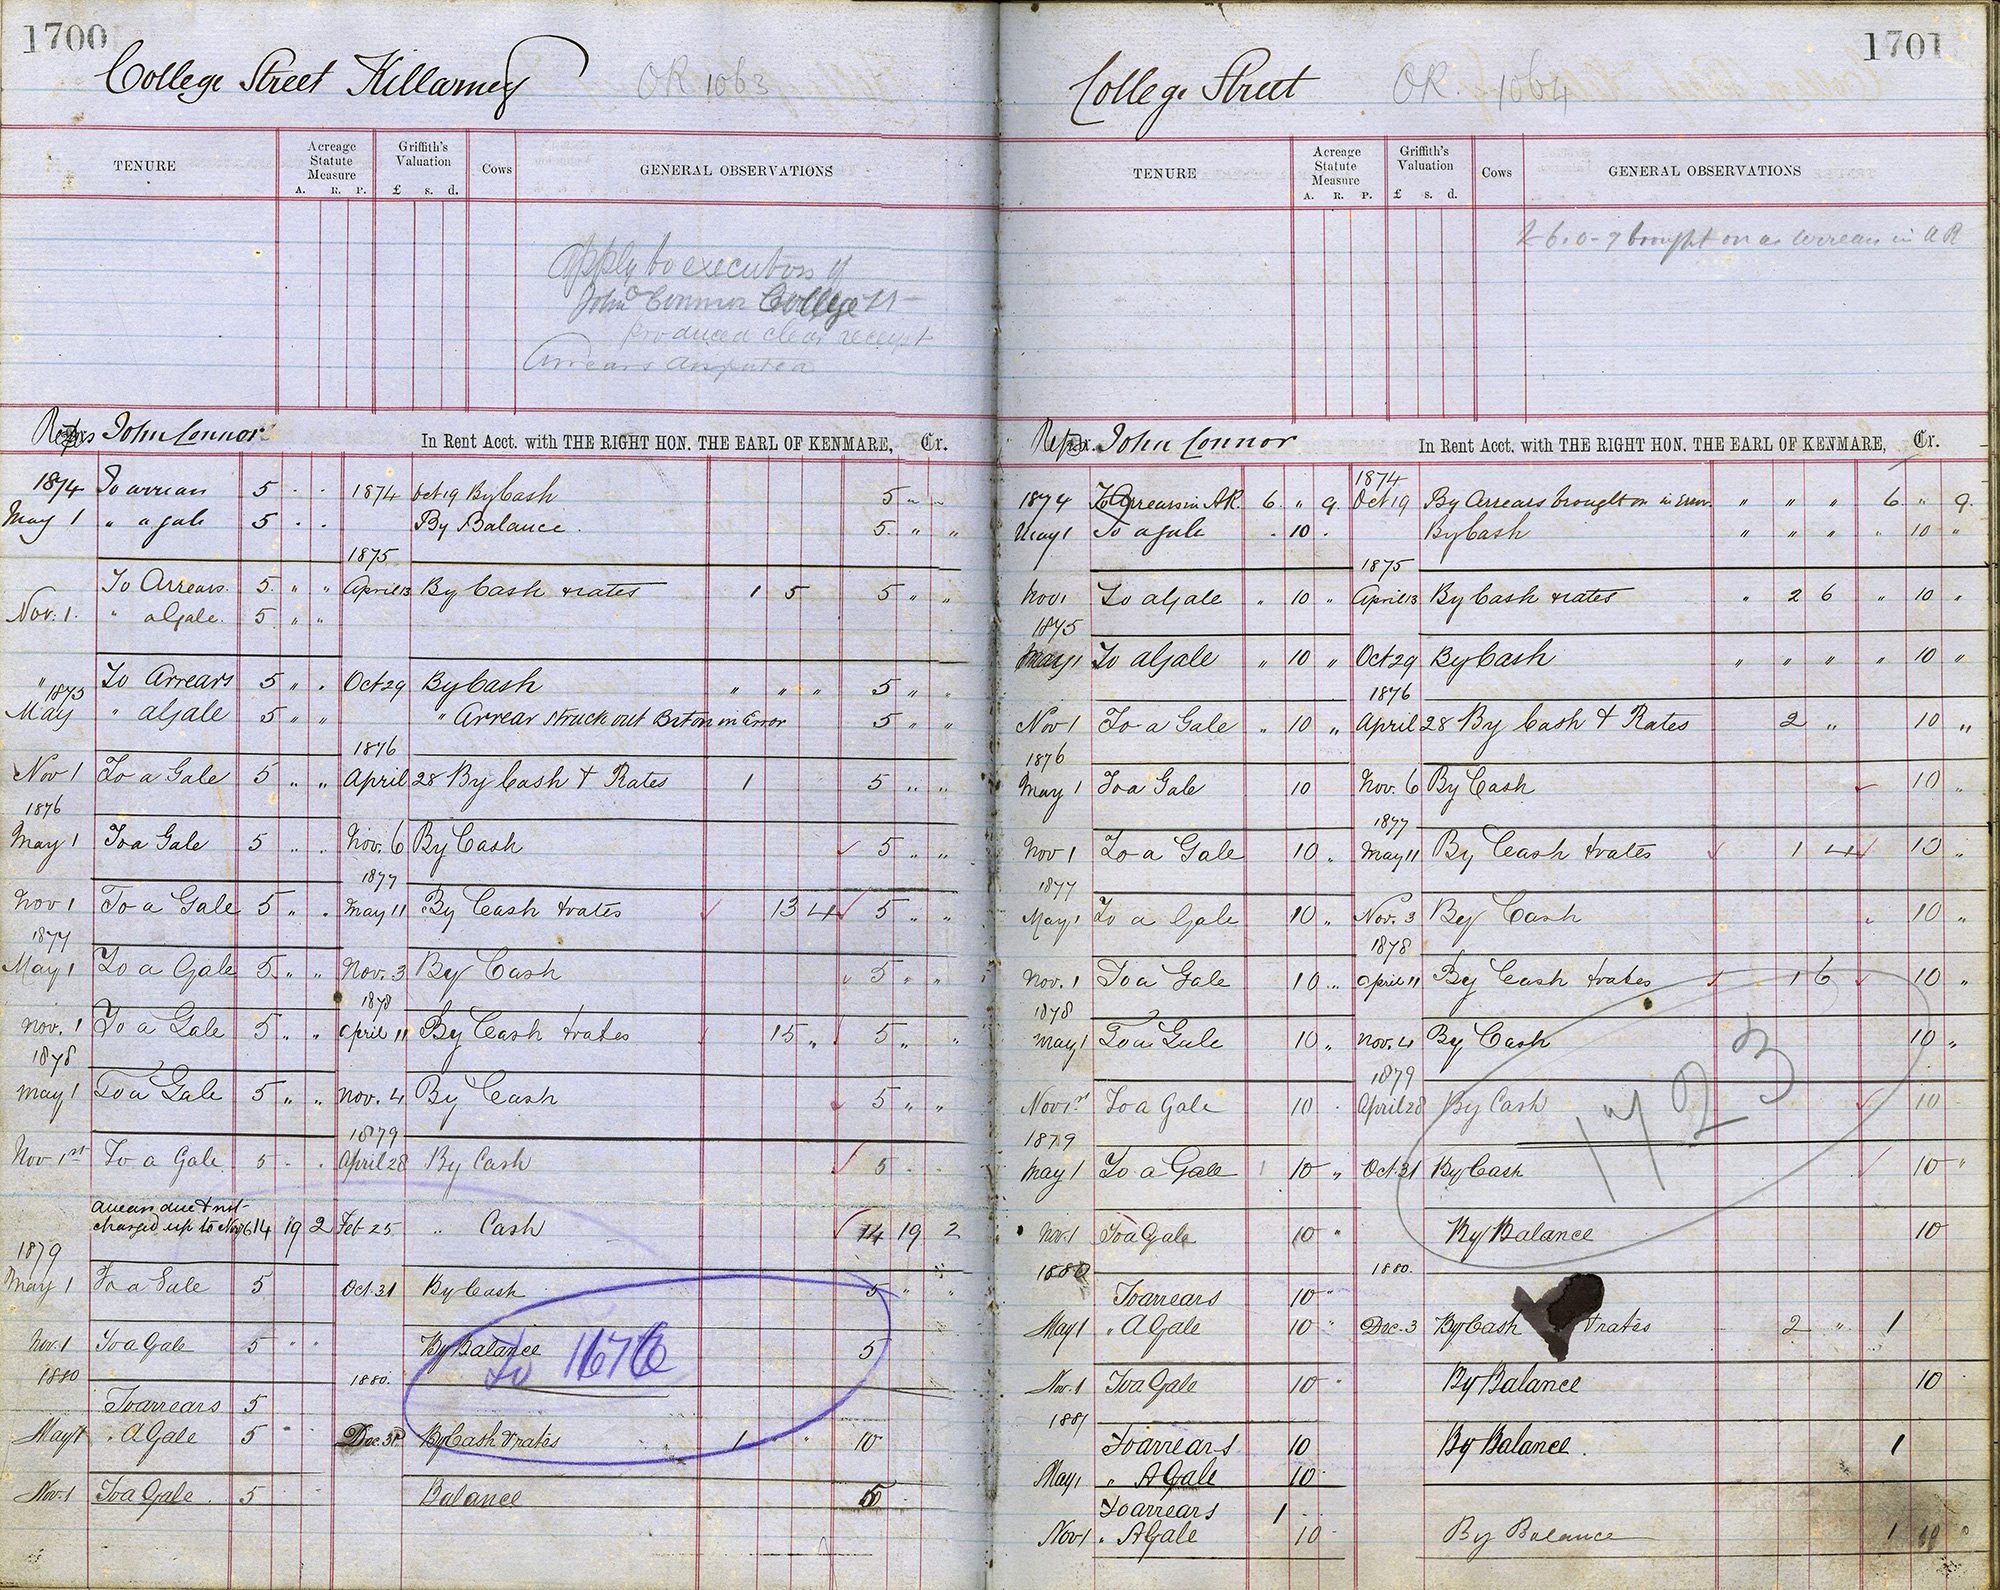 1700
College Street Killarney OR 1063
TENURE
Acreage Statute Measure
A. R. P.
Griffith's Valuation
£ s. d.
Cows
GENERAL OBSERVATIONS
Apply to executors of
John Connor College St
produced clear receipt
Arrears
John Connor
In Rent Acct. with THE RIGHT HON. THE EARL OF KENMARE, Cr.
1874 To arrears 5 " " 1874 Oct 19 By Cash 5 " "
May 1 " a gale 5 " " By Balance 5 " "
1875
To Arrears 5 " " April 13 By Cash & rates 1 5 5 " "
Nov. 1. " a Gale 5 " "
" To Arrears 5 " " Oct 29 By Cash " " " 5 " "
1875
May " a Gale 5 " " " Arrear struck out Bt on in Error 5 " "
1876
Nov 1 To a Gale 5 " " April 28 By Cash & Rates 1 5 " "
1876
May 1 To a Gale 5 " " Nov. 6 By Cash 5 " "
1877
Nov 1 To a Gale 5 " " May 11 By Cash & rates 13 4 5 " "
1877
May 1 To a Gale 5 " " Nov. 3 By Cash 5 " "
1878
Nov. 1 To a Gale 5 " " April 11 By Cash & rates 15 " 5 " "
1878
May 1 To a Gale 5 " " Nov. 4 By Cash 5 " "
1879
Nov 1st To a Gale 5 - - April 28 By Cash 5 - -
Arrears due & not
charged up to Nov 76 14 19 2 Feb 25 " Cash 14 19 2
1879
May 1 To a Gale 5 Oct. 31 By Cash 5 " "
Nov. 1 To a Gale 5 " " By Balance 5
To 1676
1880 1880.
To arrears 5
May 1 " A Gale 5 " Dec. 3 By Cash & rates 1 " " 10
Nov. 1 To a Gale 5 Balance 5
1701
College Street OR 1064
TENURE
Acreage Statute Measure
A. R. P.
Griffith's Valuation
£ s. d.
Cows
GENERAL OBSERVATIONS
£6.0.9 brought on as arrears in AR
Repr. John Connor
In Rent Acct. with THE RIGHT HON. THE EARL OF KENMARE, Cr.
1874
1874 To Arrears in AR. 6 " 9 Oct 19 By Arrears brought on in Error " " " 6 " 9
May 1 To a gale 10 By Cash " " " " 10 "
1875
Nov 1 To a Gale " 10 " April 13 By Cash & rates " 2 6 " 10 "
1875
May 1 To a Gale " 10 " Oct 29 By Cash " " " " 10 "
1876
Nov 1 To a Gale " 10 " April 28 By Cash & Rates 2 " 10 "
1876
May 1 To a Gale 10 Nov. 6 By Cash 10 "
1877
Nov 1 To a Gale 10 " May 11 By Cash & rates 1 4 10 "
1877
May 1 To a Gale 10 " Nov. 3 By Cash 10 "
1878
Nov. 1 To a Gale 10 " April 11 By Cash & rates 1 6 10 "
1878
May 1 To a Gale 10 " Nov. 4 By Cash 10 "
1879
Nov 1st To a Gale 10 April 28 By Cash 10
1723
1879
May 1 To a Gale 10 " Oct. 31 By Cash 10 "
Nov. 1 To a Gale 10 " By Balance 10
1880 1880.
To arrears 10 "
May 1 " A Gale 10 " Dec. 3 By Cash & rates 2 " 1
Nov. 1 To a Gale 10 " By Balance 10
1881
To arrears 10 By Balance 1
May 1 " A Gale 10
To arrears 1
Nov 1 " A Gale 10 By Balance 1 10 0